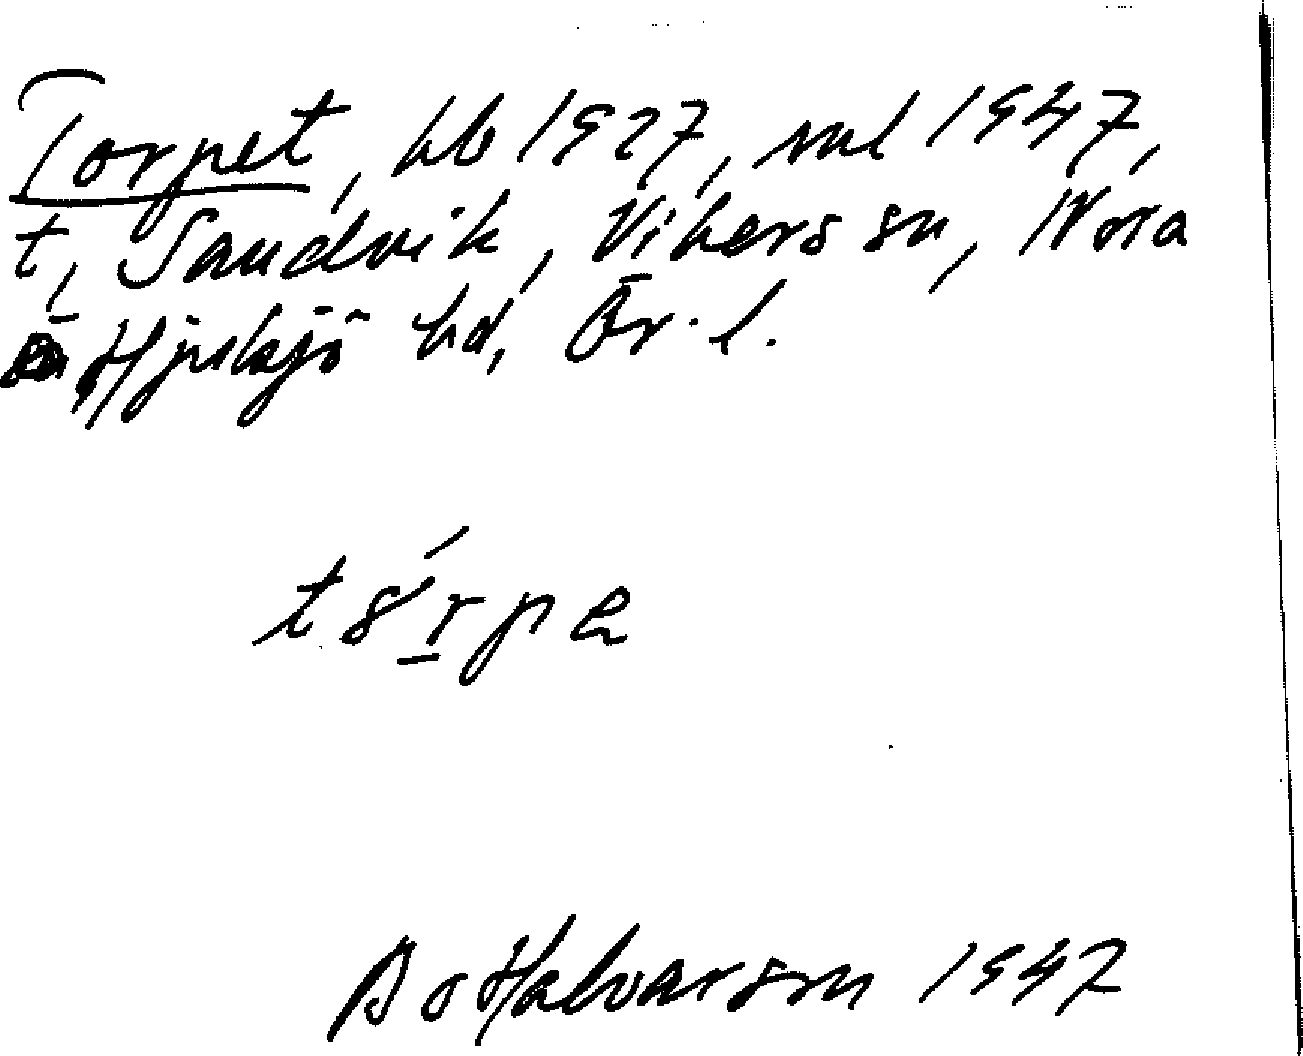 Torpet, kb 1927, sml 1947,
t, Sandvik, Vikers sn, Nora
o Hjulsjö bd, Ör. l.
tó̱rpe
Bo Halvarson 1947